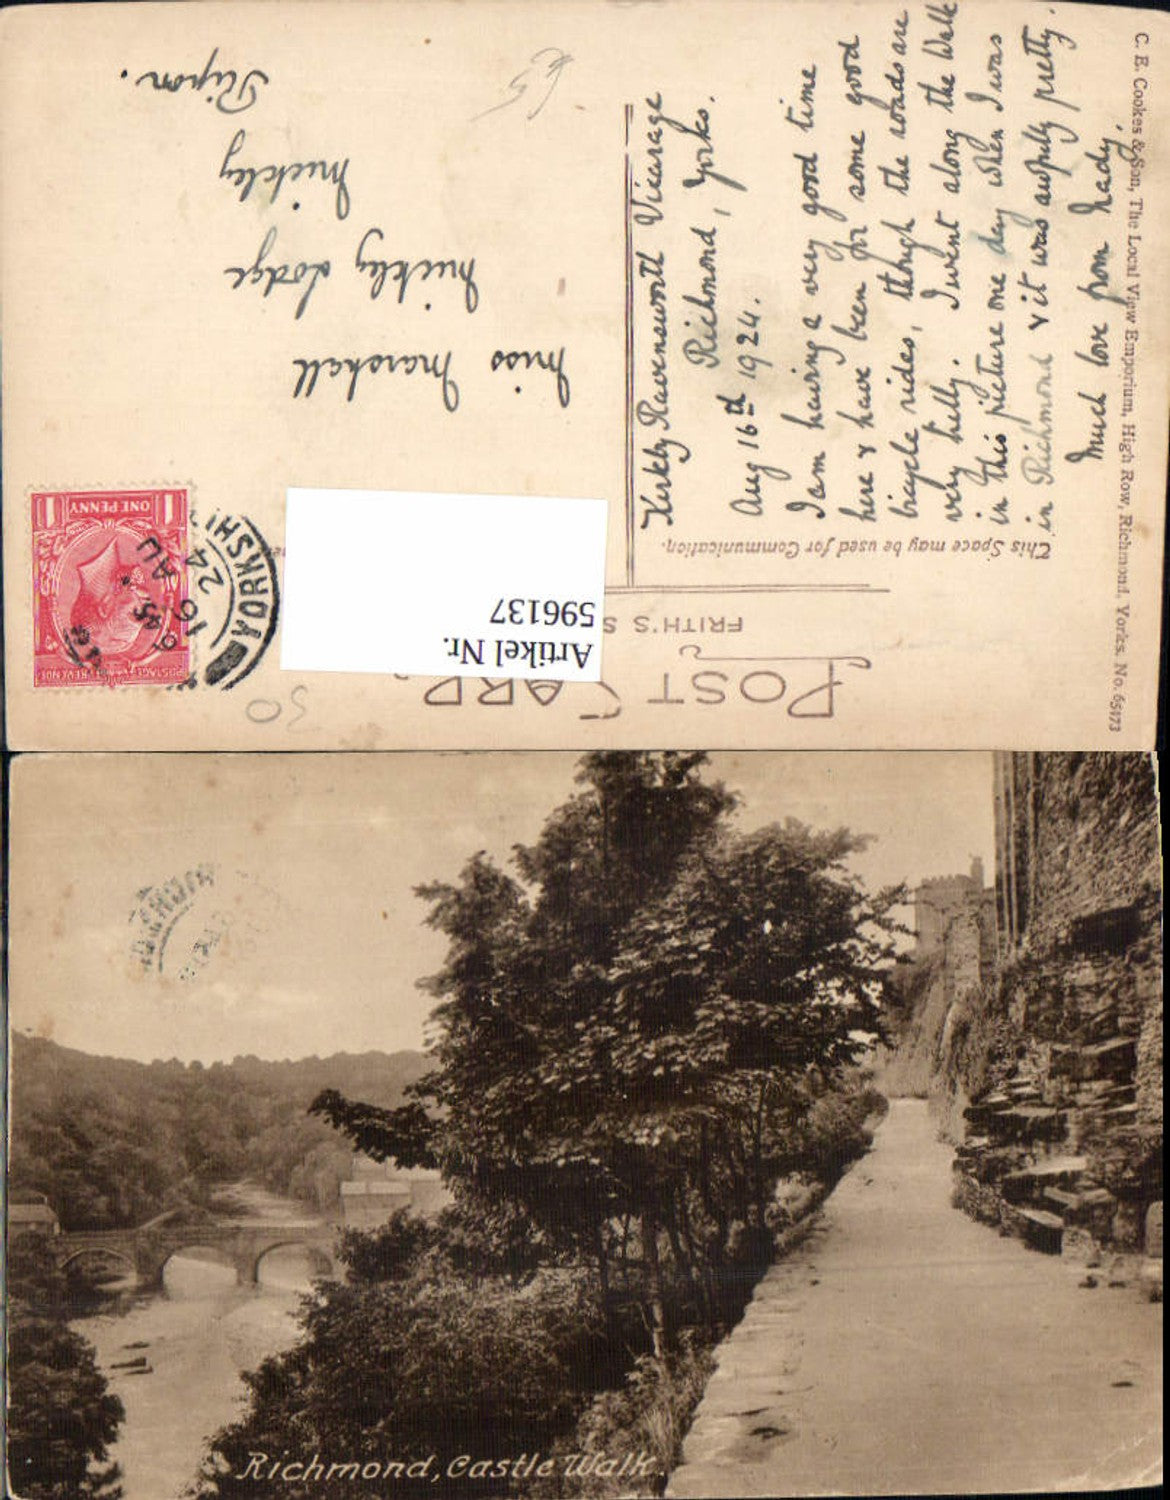 POST CARD
FRITH'S S
This Space may be used for Communication.
Artikel Nr.
596137
C. E. Cookes & Son, The Local View Emporium, High Row, Richmond. Yorks. No. 65173
Kirkby Ravensworth Vicarage
Richmond, Yorks.
Aug 16th 1924.
I am having a very good time
here & have been for some good
bicycle rides, though the roads are
very hilly. I went along the Walk
in this picture one day when I was
in Richmond & it was awfully pretty.
Much love from Nady.
Miss Marshall
Mickley Lodge
Mickley
Ripon.
POSTAGE REVENUE
1 ONE PENNY 1
YORKSHI
9 45
16 AU
24
£5
30
Richmond, Castle Walk.